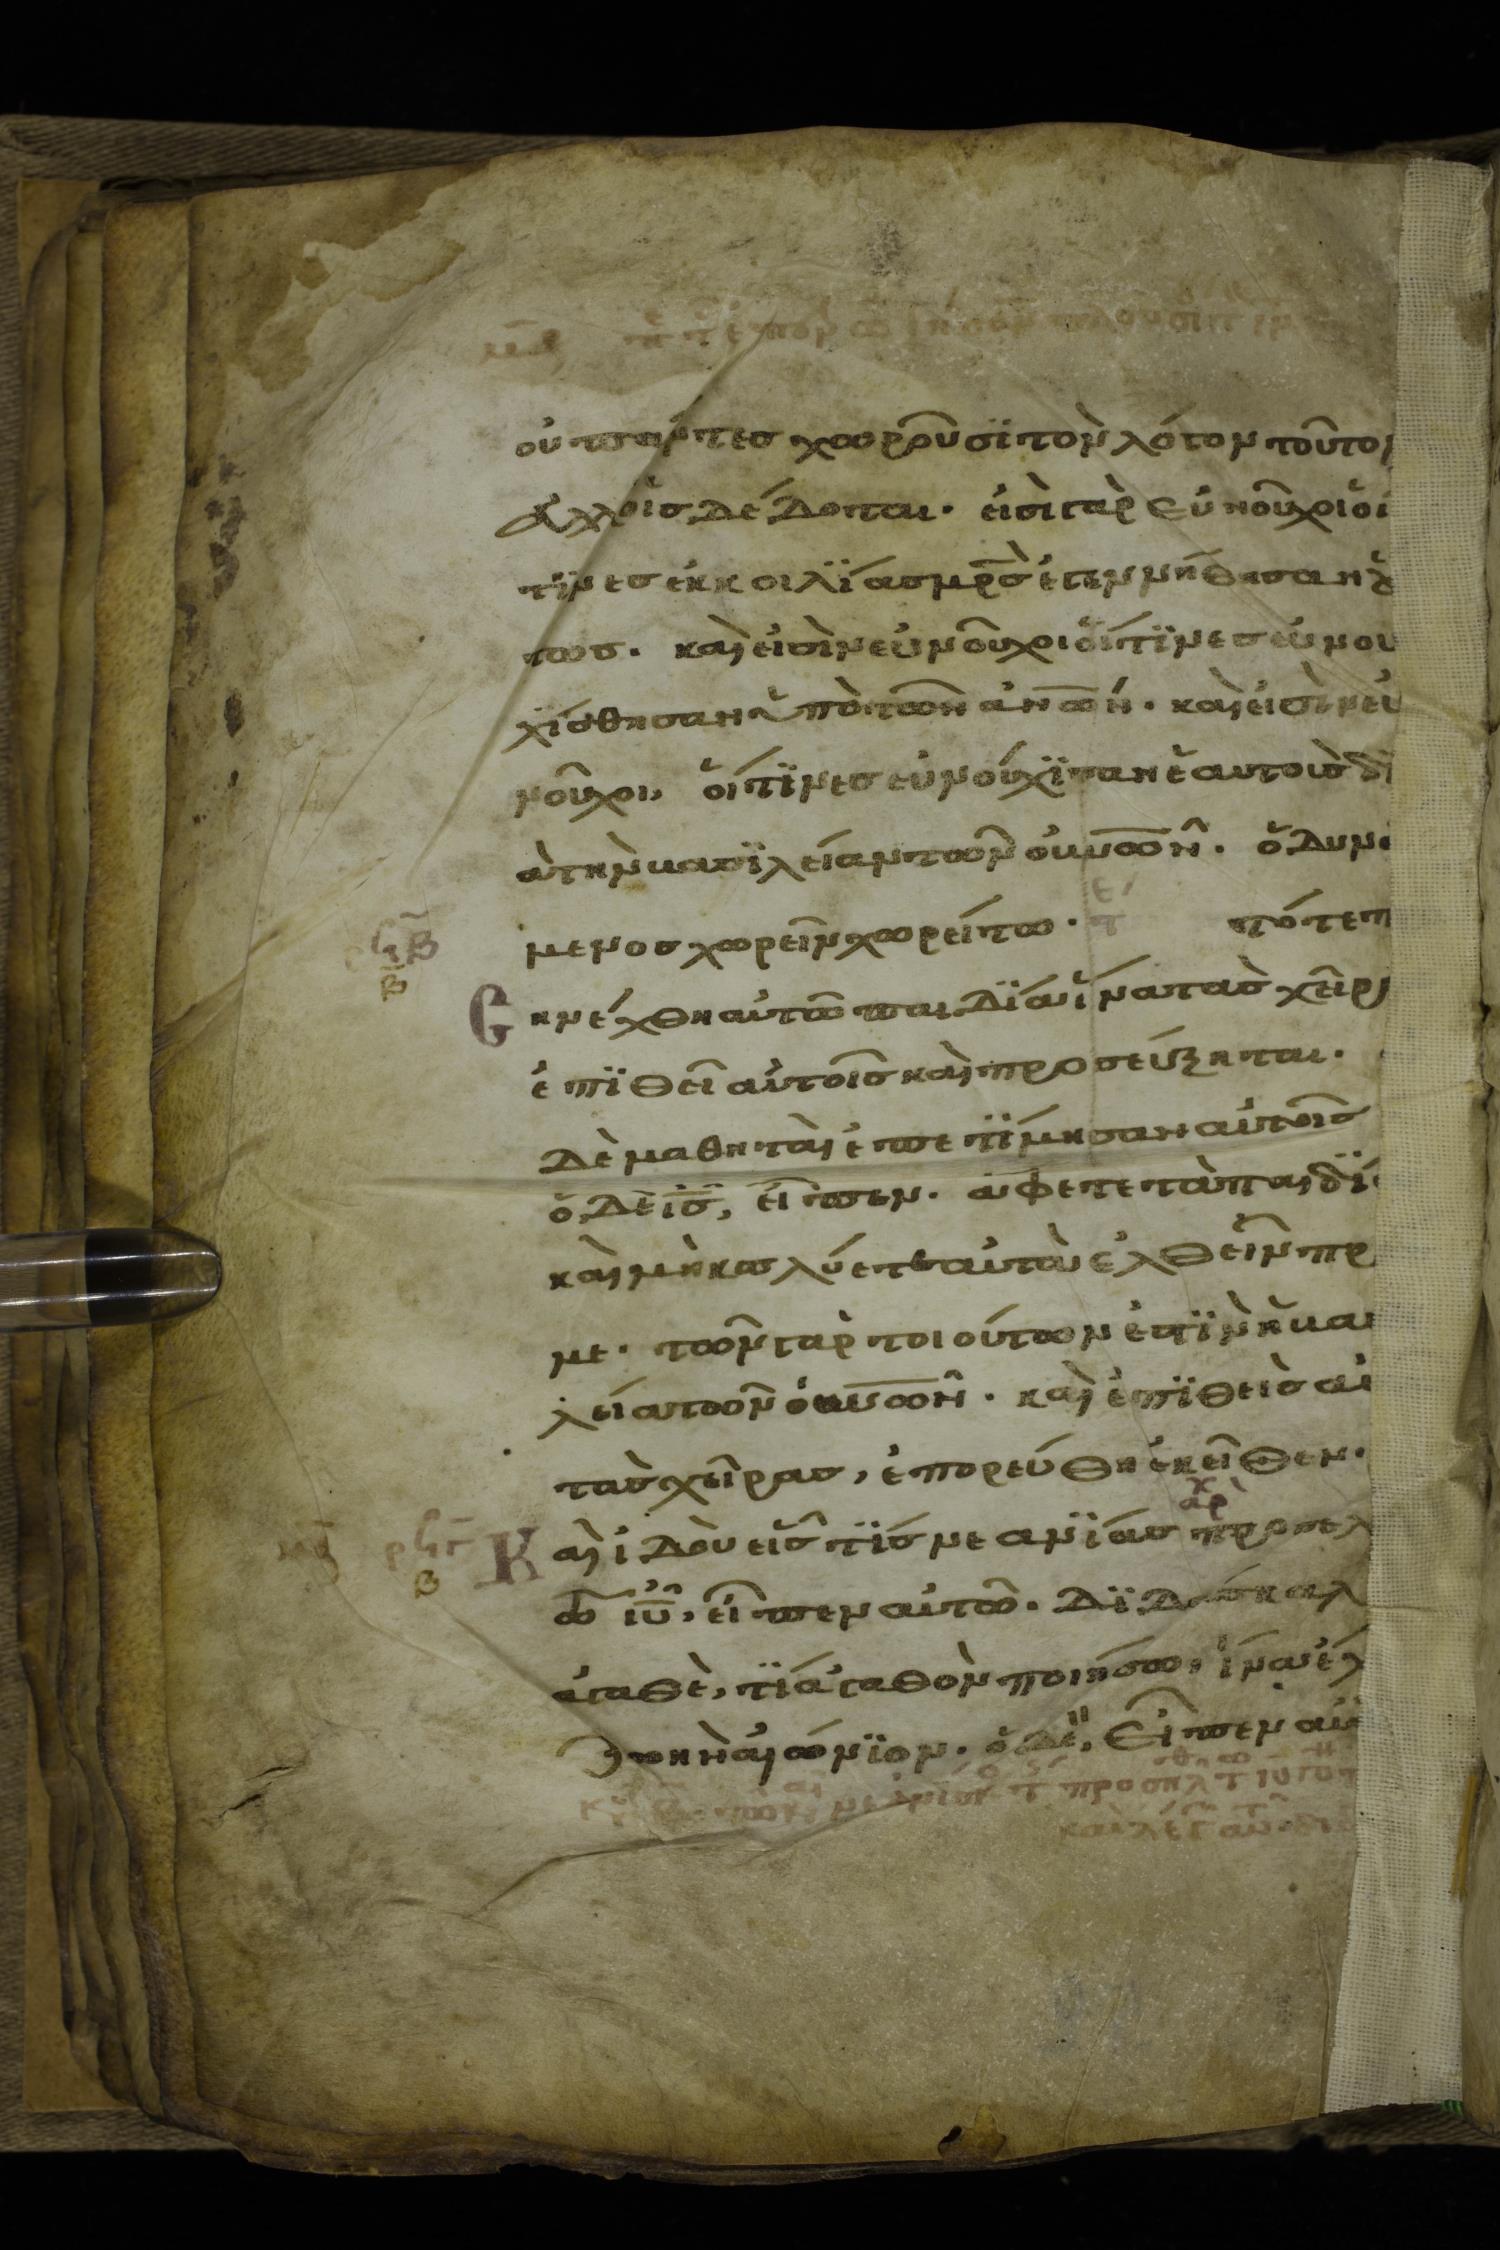 οὐ πάντες χωροῦσϊ τὸν λόγον τοῦτον
ἀλλ' οἷς δέδοται. εἰσὶ γὰρ εὐνοῦχοι οἵ
τϊνες ἐκ κοιλϊας μρ̅ς ἐγεννήθησαν ὅυ
τως. καὶ εἰσὶν εὐνοῦχοι οἵτϊνες εὐνου
χίσθησαν ὑπὸ τῶν ἀνω̅ν. καὶ εἰσὶν εὐ
νοῦχοι, οἵτϊνες εὐνούχϊσαν ἑαυτοὺς δϊ
ὰ τὴν βασϊλείαν τῶν οὐνω̅ν. ὁ δυνά
μενος χωρεῖν χωρείτω. τότε π
Ε ηνέχθη αὐτῶ παιδϊα ἵνα τὰς χεῖρα
ἐπϊθεῖ αὐτοῖς καὶ προσεύξηται.
δὲ μαθηταὶ ἐπετϊμησαν αὐτοῖς
ὁ δὲ ι̅ς, εἶπεν. ἄφετε τὰ παιδϊ
καὶ μὴ κωλύετε αὐτὰ ἐλθεῖν πρ
με. τῶν γὰρ τοιούτων ἐστϊν ἡ βασ
λεία τῶν οὐνω̅ν. καὶ ἐπϊθεὶς αὐ
τὰς χεῖρας, ἐπορεύθη ἐκεῖθεν.
Κ αὶ ἰδοὺ εἷς τϊς νεανϊας προσελ
ῶ ιυ̅, εἶπεν αὐτῶ. Δϊδάσκαλ
ἀγαθὲ, τϊ ἀγαθὸν ποιήσω, ἵνα ἔχ
ζωὴν αἰώνϊον. ὁ δὲ, εἶπεν αὐ